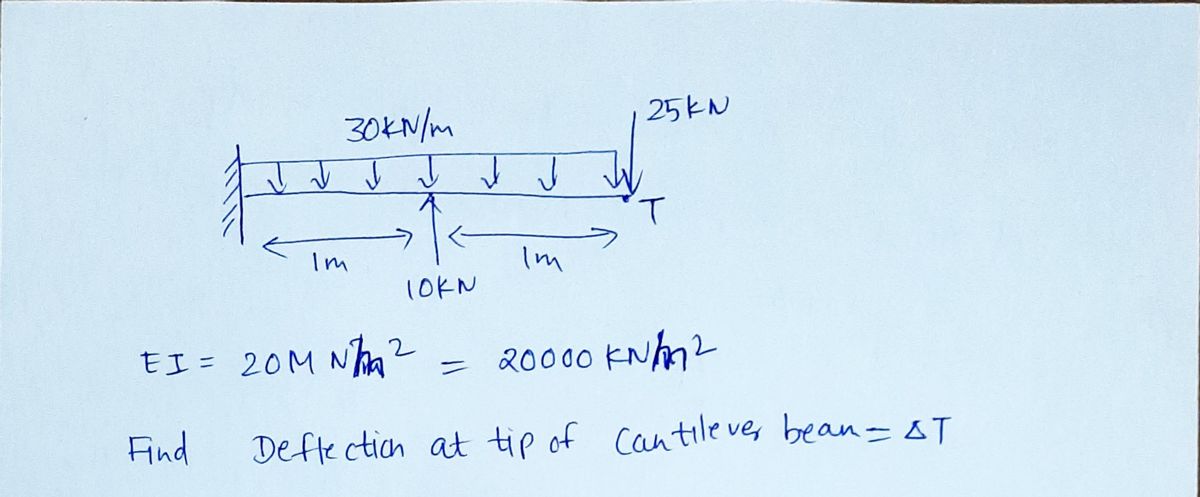 30KN/m
25KN
T
1m
1m
10KN
EI = 20M N/m² = 20000 KN/m²
Find Deflection at tip of Cantilever bean = ΔT